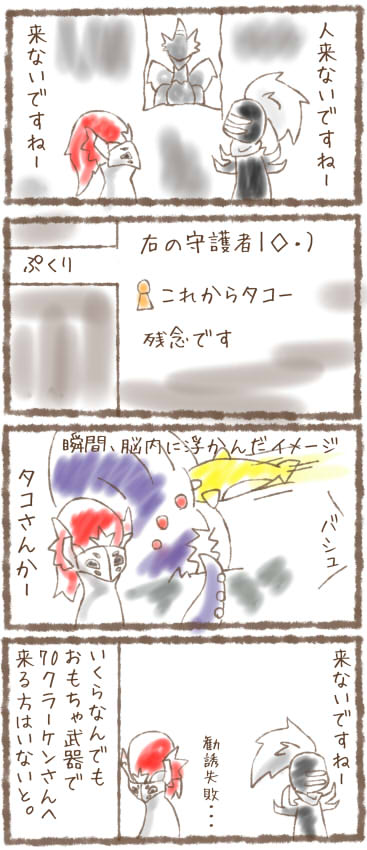 人来ないですねー
来ないですねー
ぷくり
右の守護者|◇・)
これからタコー
残念です
瞬間、脳内に浮かんだイメージ
タコさんかー
バシュ
来ないですねー
勧誘失敗・・・
いくらなんでも
おもちゃ武器で
70クラーケンさんへ
来る方はいないと。